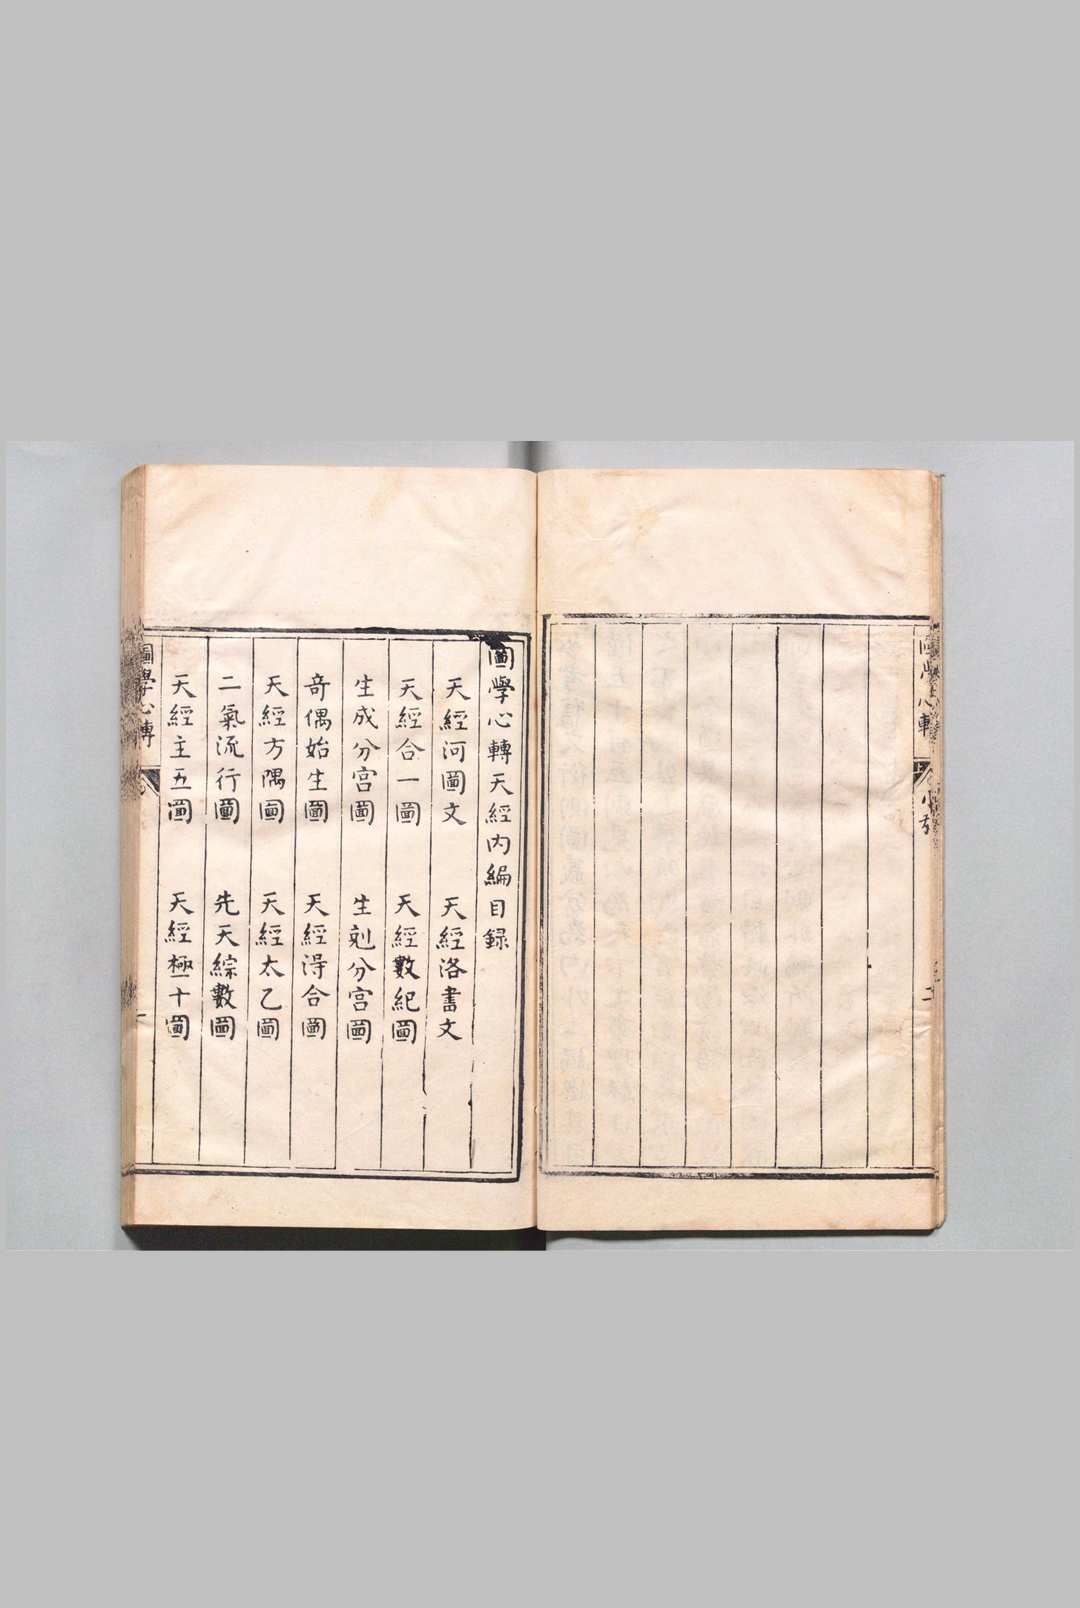 圖學心轉
圖學心轉天經内編目録
天經河圖文　天經洛書文
天經合一圖　天經數紀圖
生成分宫圖　生剋分宫圖
奇偶始生圖　天經得合圖
天經方隅圖　天經太乙圖
二氣流行圖　先天綜數圖
天經主五圖　天經極十圖
圖學心轉